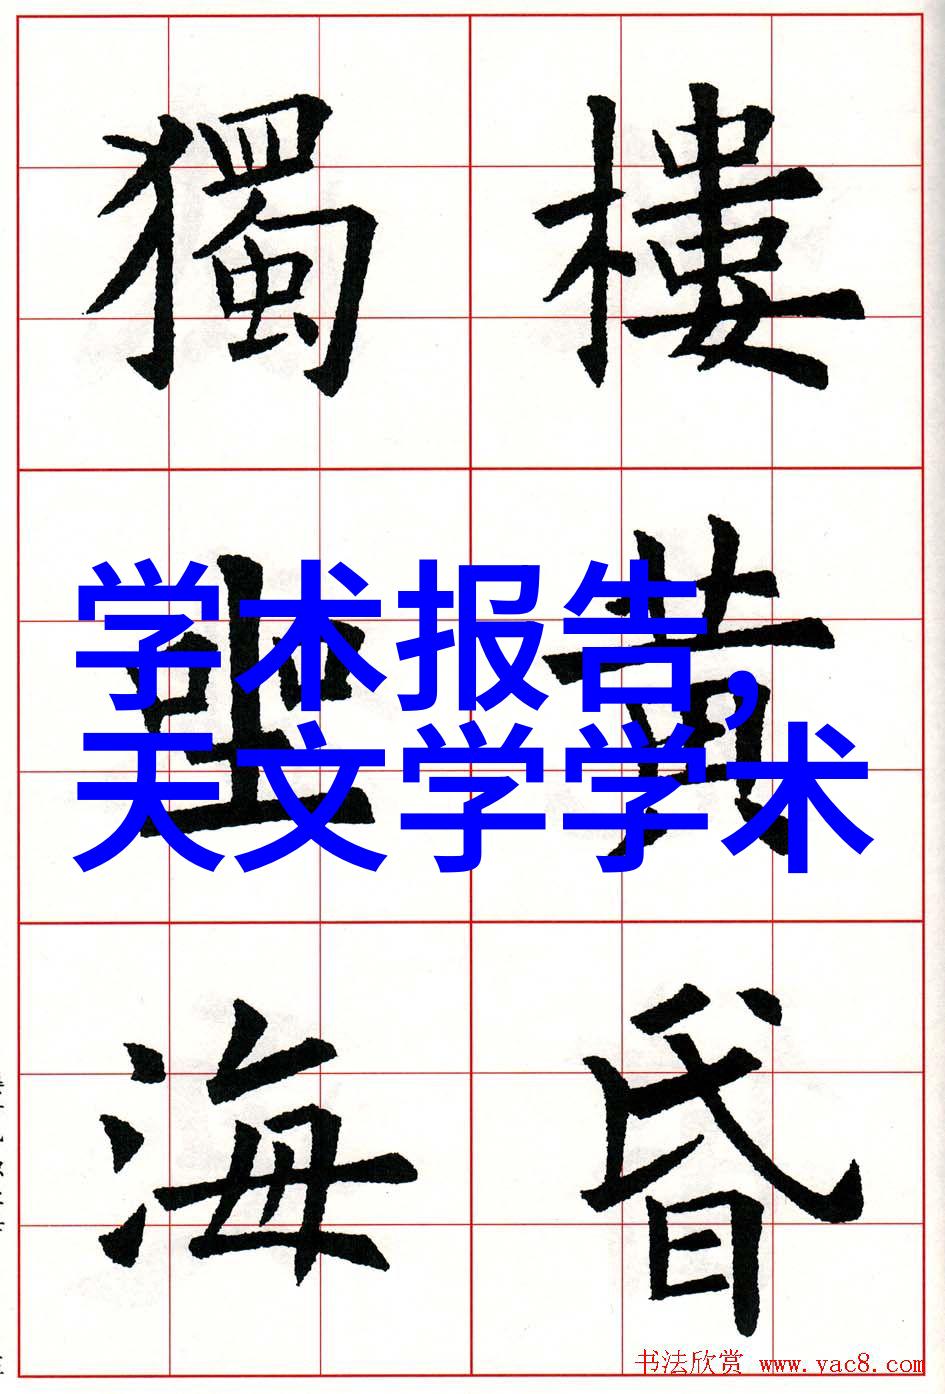 樓黄昏
獨坐海
学术报告,
天文学学术
书法欣赏 www.yac8.com